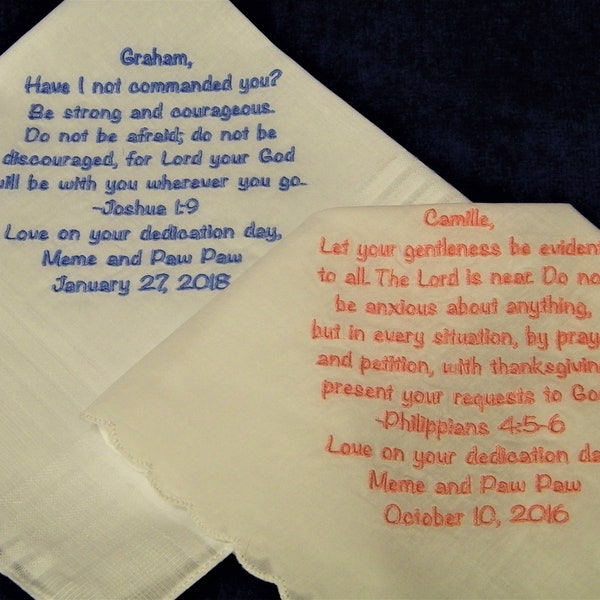 Graham,
Have I not commanded you?
Be strong and courageous.
Do not be afraid; do not be
discouraged, for Lord your God
will be with you wherever you go.
~Joshua 1:9
Love on your dedication day,
Meme and Paw Paw
January 27, 2018
Camille,
Let your gentleness be evident
to all. The Lord is near. Do no
be anxious about anything,
but in every situation, by pray
and petition, with thanksgivin
present your requests to Go
~Philippians 4:5-6
Love on your dedication da
Meme and Paw Paw
October 10, 2016